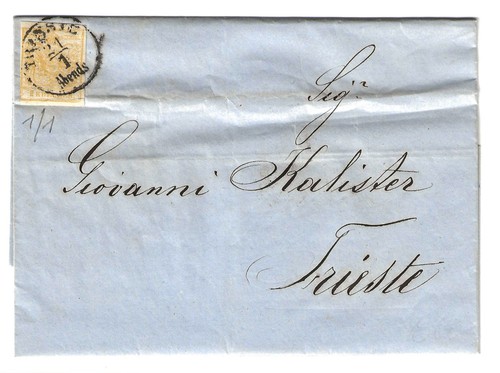 TRIEST
21/1
Abends
1/1
Sig.r
Giovanni Kalister
Trieste